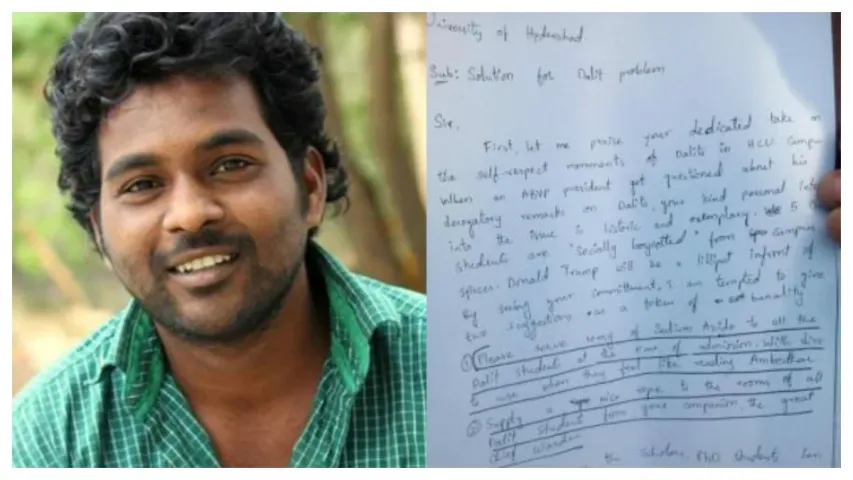 University of Hyderabad
Sub: Solution for Dalit problem
Sir,
First, let me praise your dedicated take on
the self-respect movements of Dalits in HCU Campus
When an ABVP president got questioned about his
derogatory remarks on Dalits, your kind personal
into the issue is historic and exemplary. 5
students are "socially boycotted" from campus
spaces. Donald Trump will be a lilliput infront of
By seeing your commitment, I am tempted to give
two suggestions as a token of banality
① Please serve 10mg of Sodium Azide to all the
Dalit students at the time of admission. With
to use when they feel like reading Ambedkar
② Supply a nice rope to the rooms of all
Dalit students from your companion, the great
chief warden
the scholars, PhD students